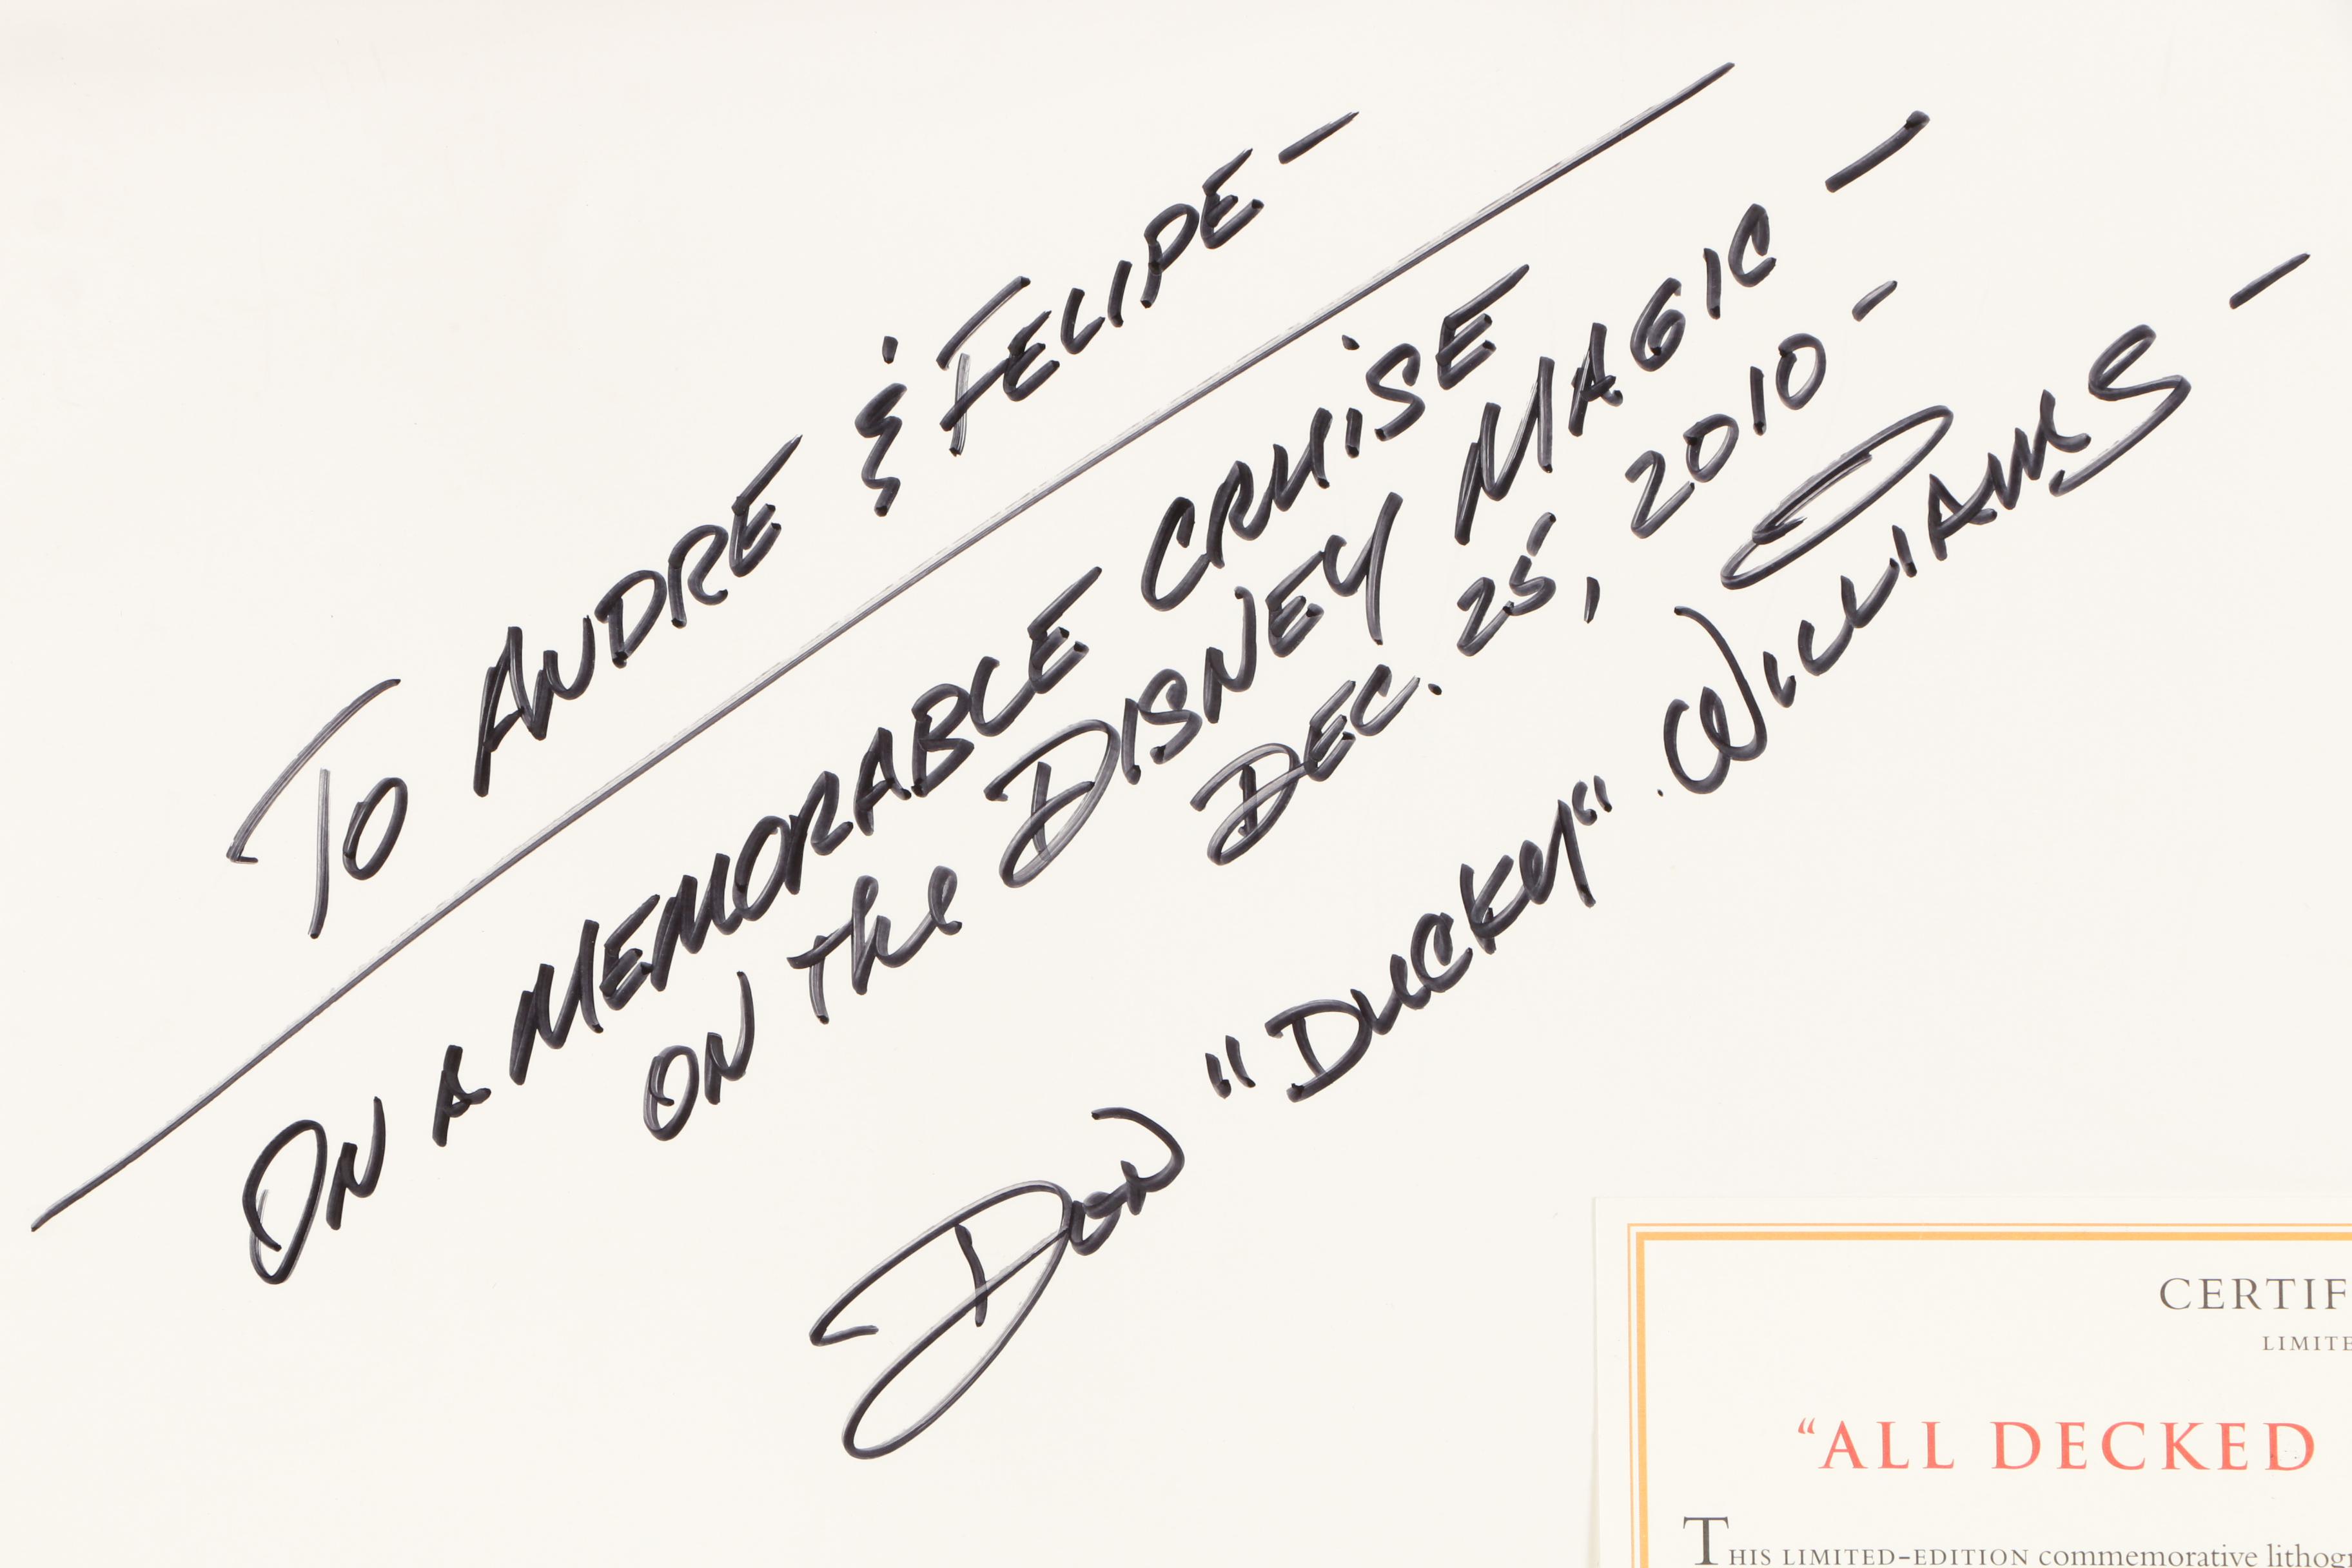 To ANDRE & FELIPE -
ON A MEMORABLE CRUISE
ON the DISNEY MAGIC -
DEC. 25, 2010 -
DON "DUCKY" WILLIAMS -
CERTIF
LIMITE
"ALL DECKED
THIS LIMITED-EDITION commemorative lithog